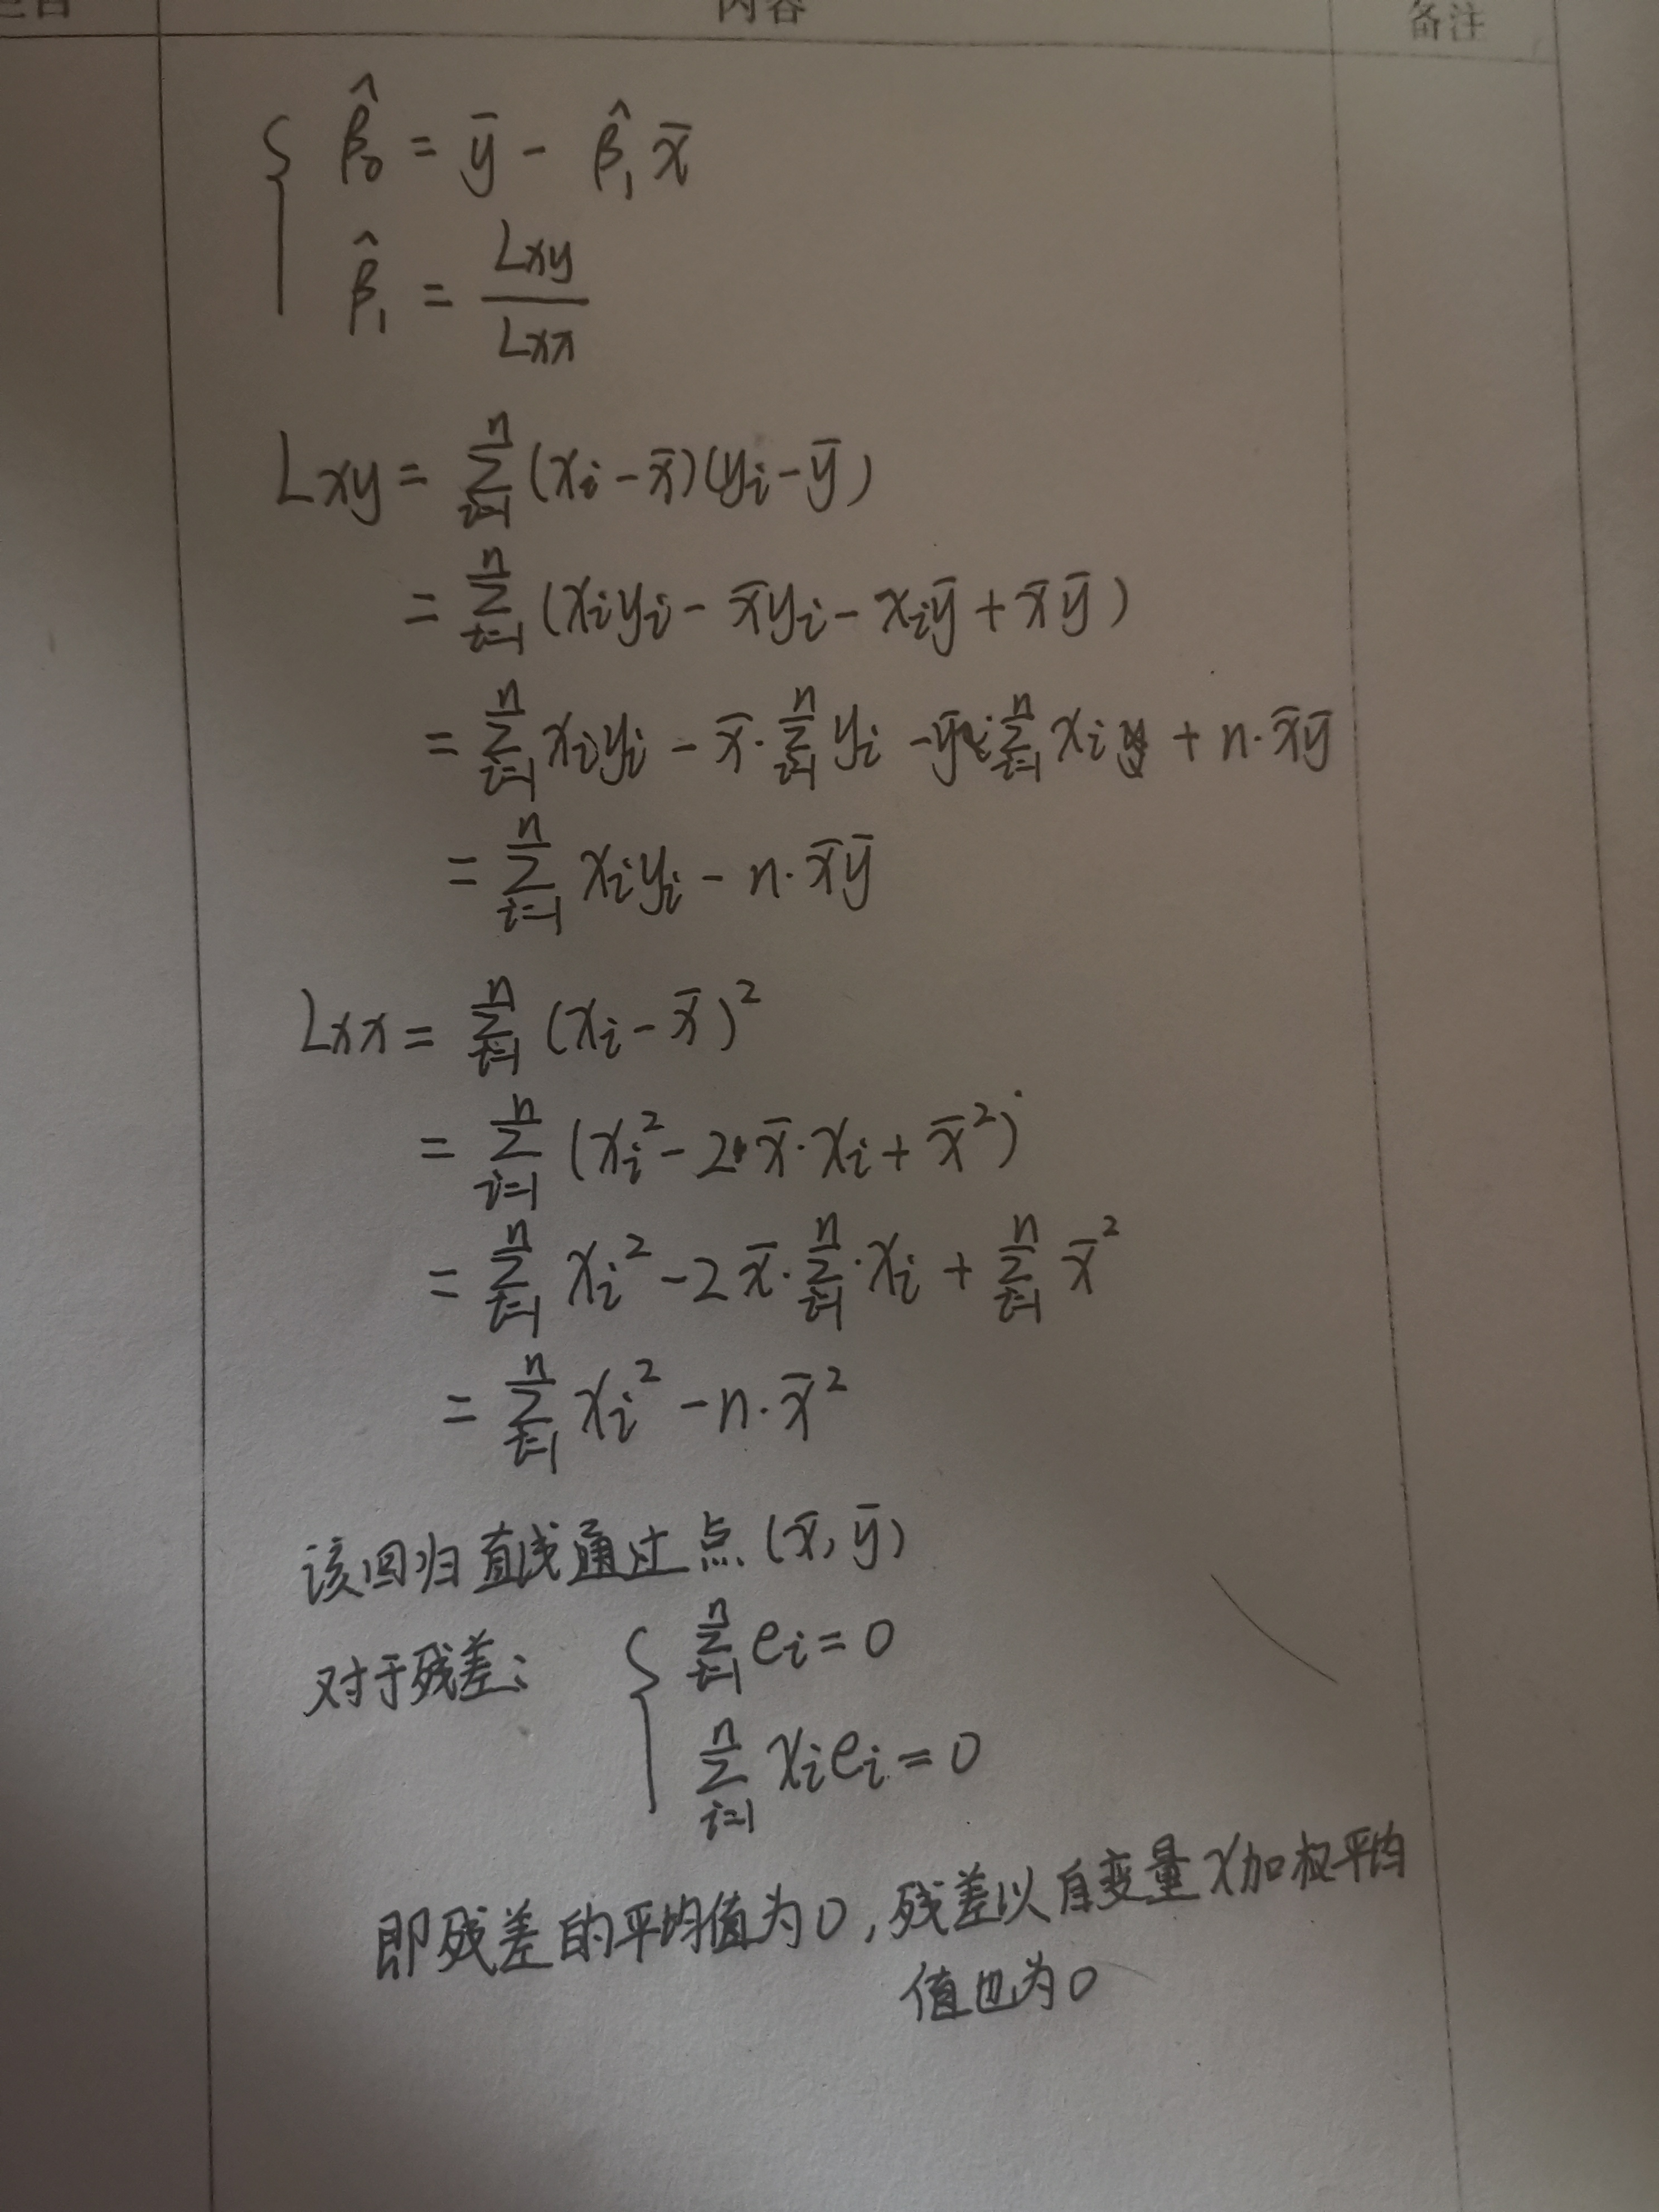 内容 备注
β̂₀ = ȳ - β̂₁x̄
β̂₁ = Lxy / Lxx
Lxy = ∑ᵢ₌₁ⁿ (xᵢ - x̄)(yᵢ - ȳ)
= ∑ᵢ₌₁ⁿ (xᵢyᵢ - x̄yᵢ - xᵢȳ + x̄ȳ)
= ∑ᵢ₌₁ⁿ xᵢyᵢ - x̄·∑ᵢ₌₁ⁿ yᵢ - ȳ·∑ᵢ₌₁ⁿ xᵢ + n·x̄ȳ
= ∑ᵢ₌₁ⁿ xᵢyᵢ - n·x̄ȳ
Lxx = ∑ᵢ₌₁ⁿ (xᵢ - x̄)²
= ∑ᵢ₌₁ⁿ (xᵢ² - 2·x̄·xᵢ + x̄²)
= ∑ᵢ₌₁ⁿ xᵢ² - 2x̄·∑ᵢ₌₁ⁿ·xᵢ + ∑ᵢ₌₁ⁿ x̄²
= ∑ᵢ₌₁ⁿ xᵢ² - n·x̄²
该回归直线通过点(x̄, ȳ)
对于残差: ∑ᵢ₌₁ⁿ eᵢ = 0
∑ᵢ₌₁ⁿ xᵢeᵢ = 0
即残差的平均值为0,残差以自变量x加权平均
值也为0